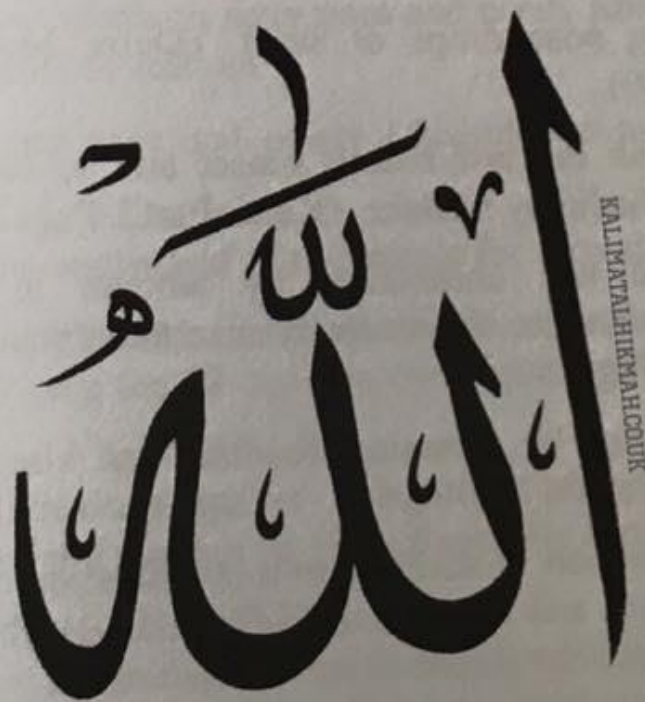 اللّٰهُ
KALIMATALHIKMAH.CO.UK